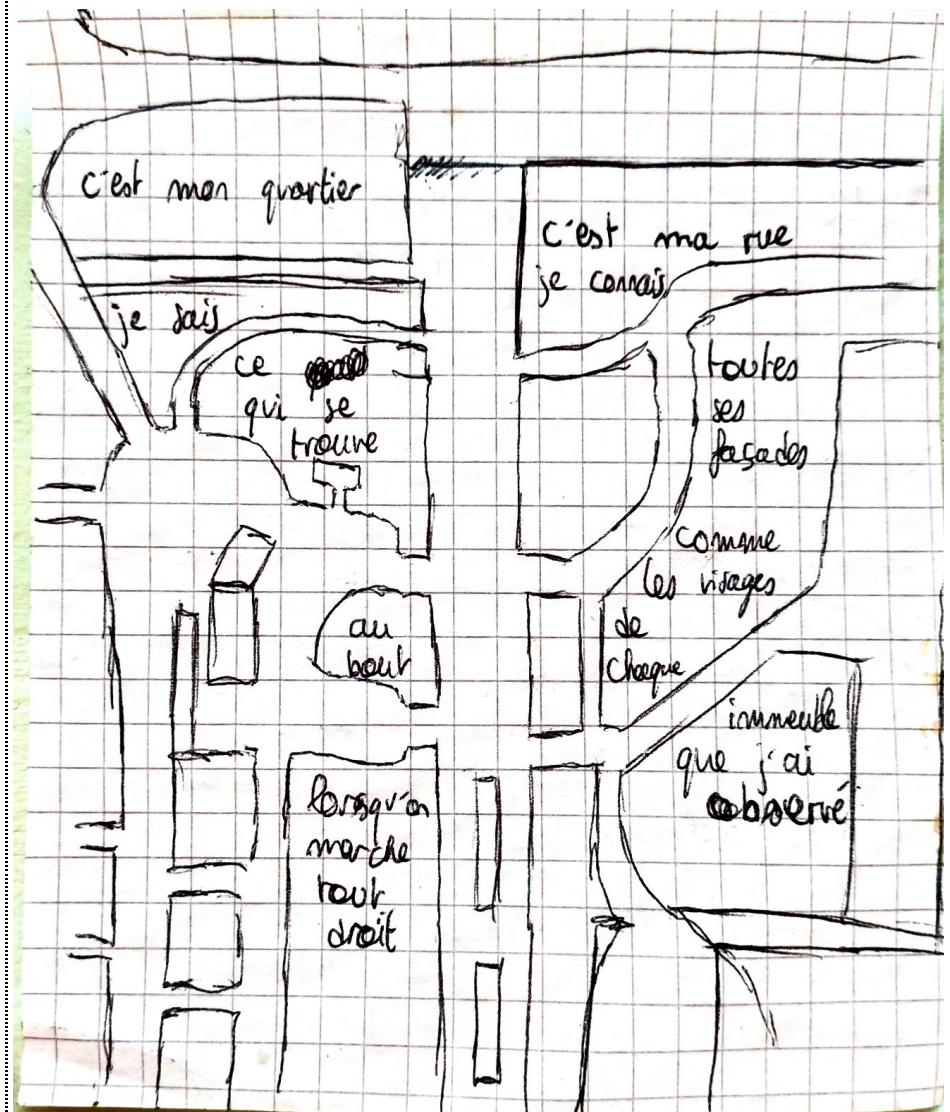 c'est mon quartier
je sais
ce
qui se
trouve
au
bout
lorsqu'on
marche
tout
droit
c'est ma rue
je connais
toutes
ses
façades
comme
les visages
de
chaque
immeuble
que j'ai
observé